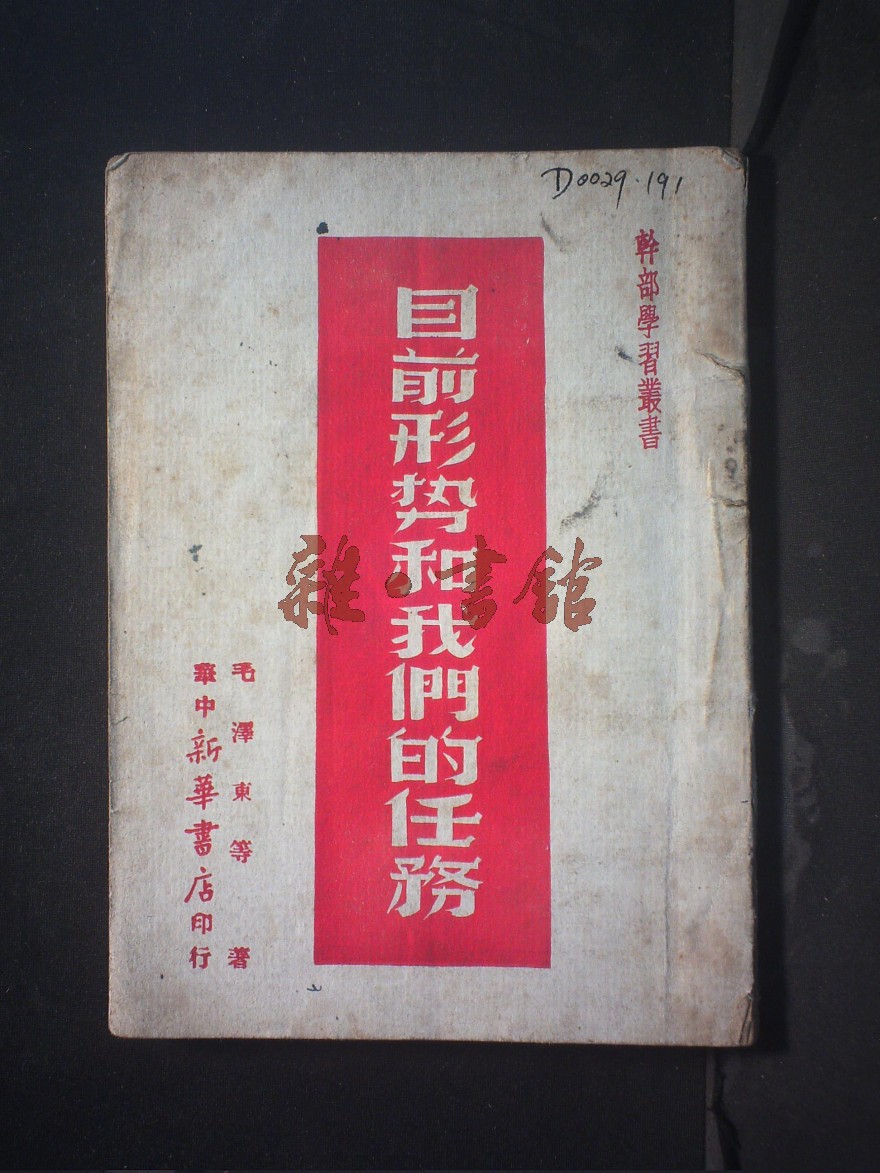 D0029·191
幹部學習叢書
目前形势和我們的任務
毛澤東等著
華中新華書店印行
雜·書館